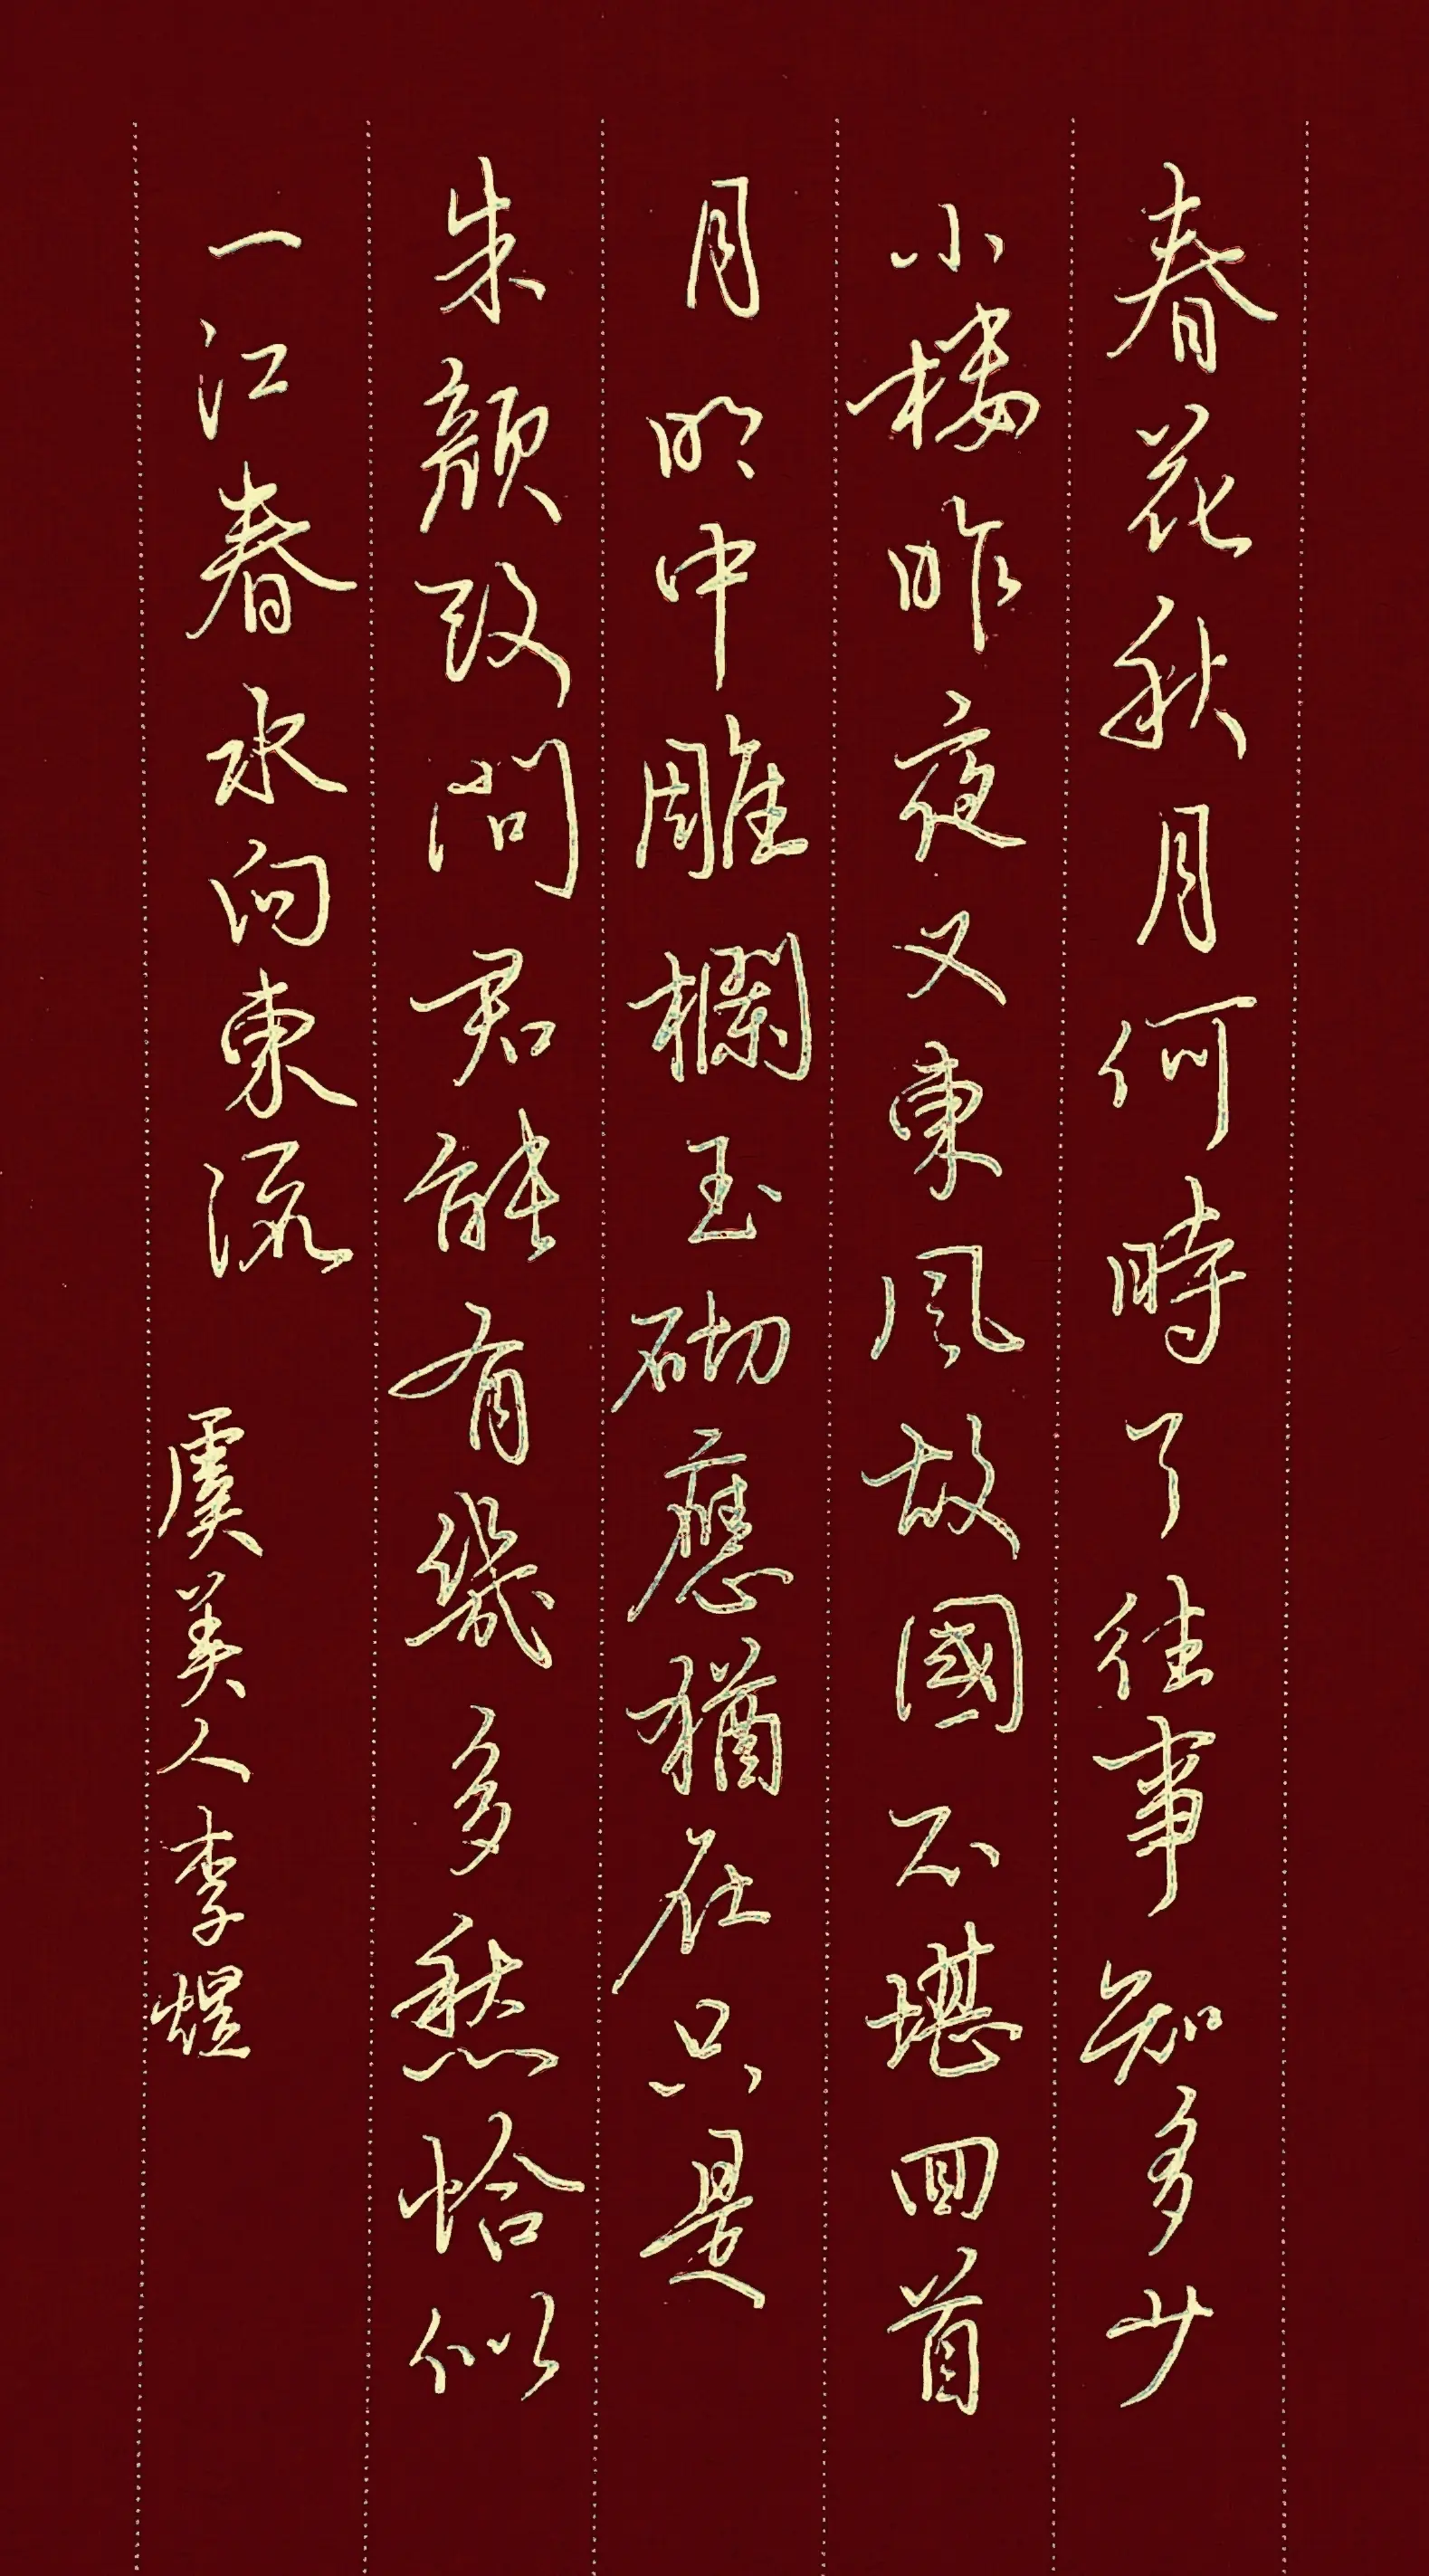 春花秋月何時了往事知多少
小樓昨夜又東風故國不堪回首
月明中雕欄玉砌應猶在只是
朱顏改問君能有幾多愁恰似
一江春水向東流 虞美人李煜